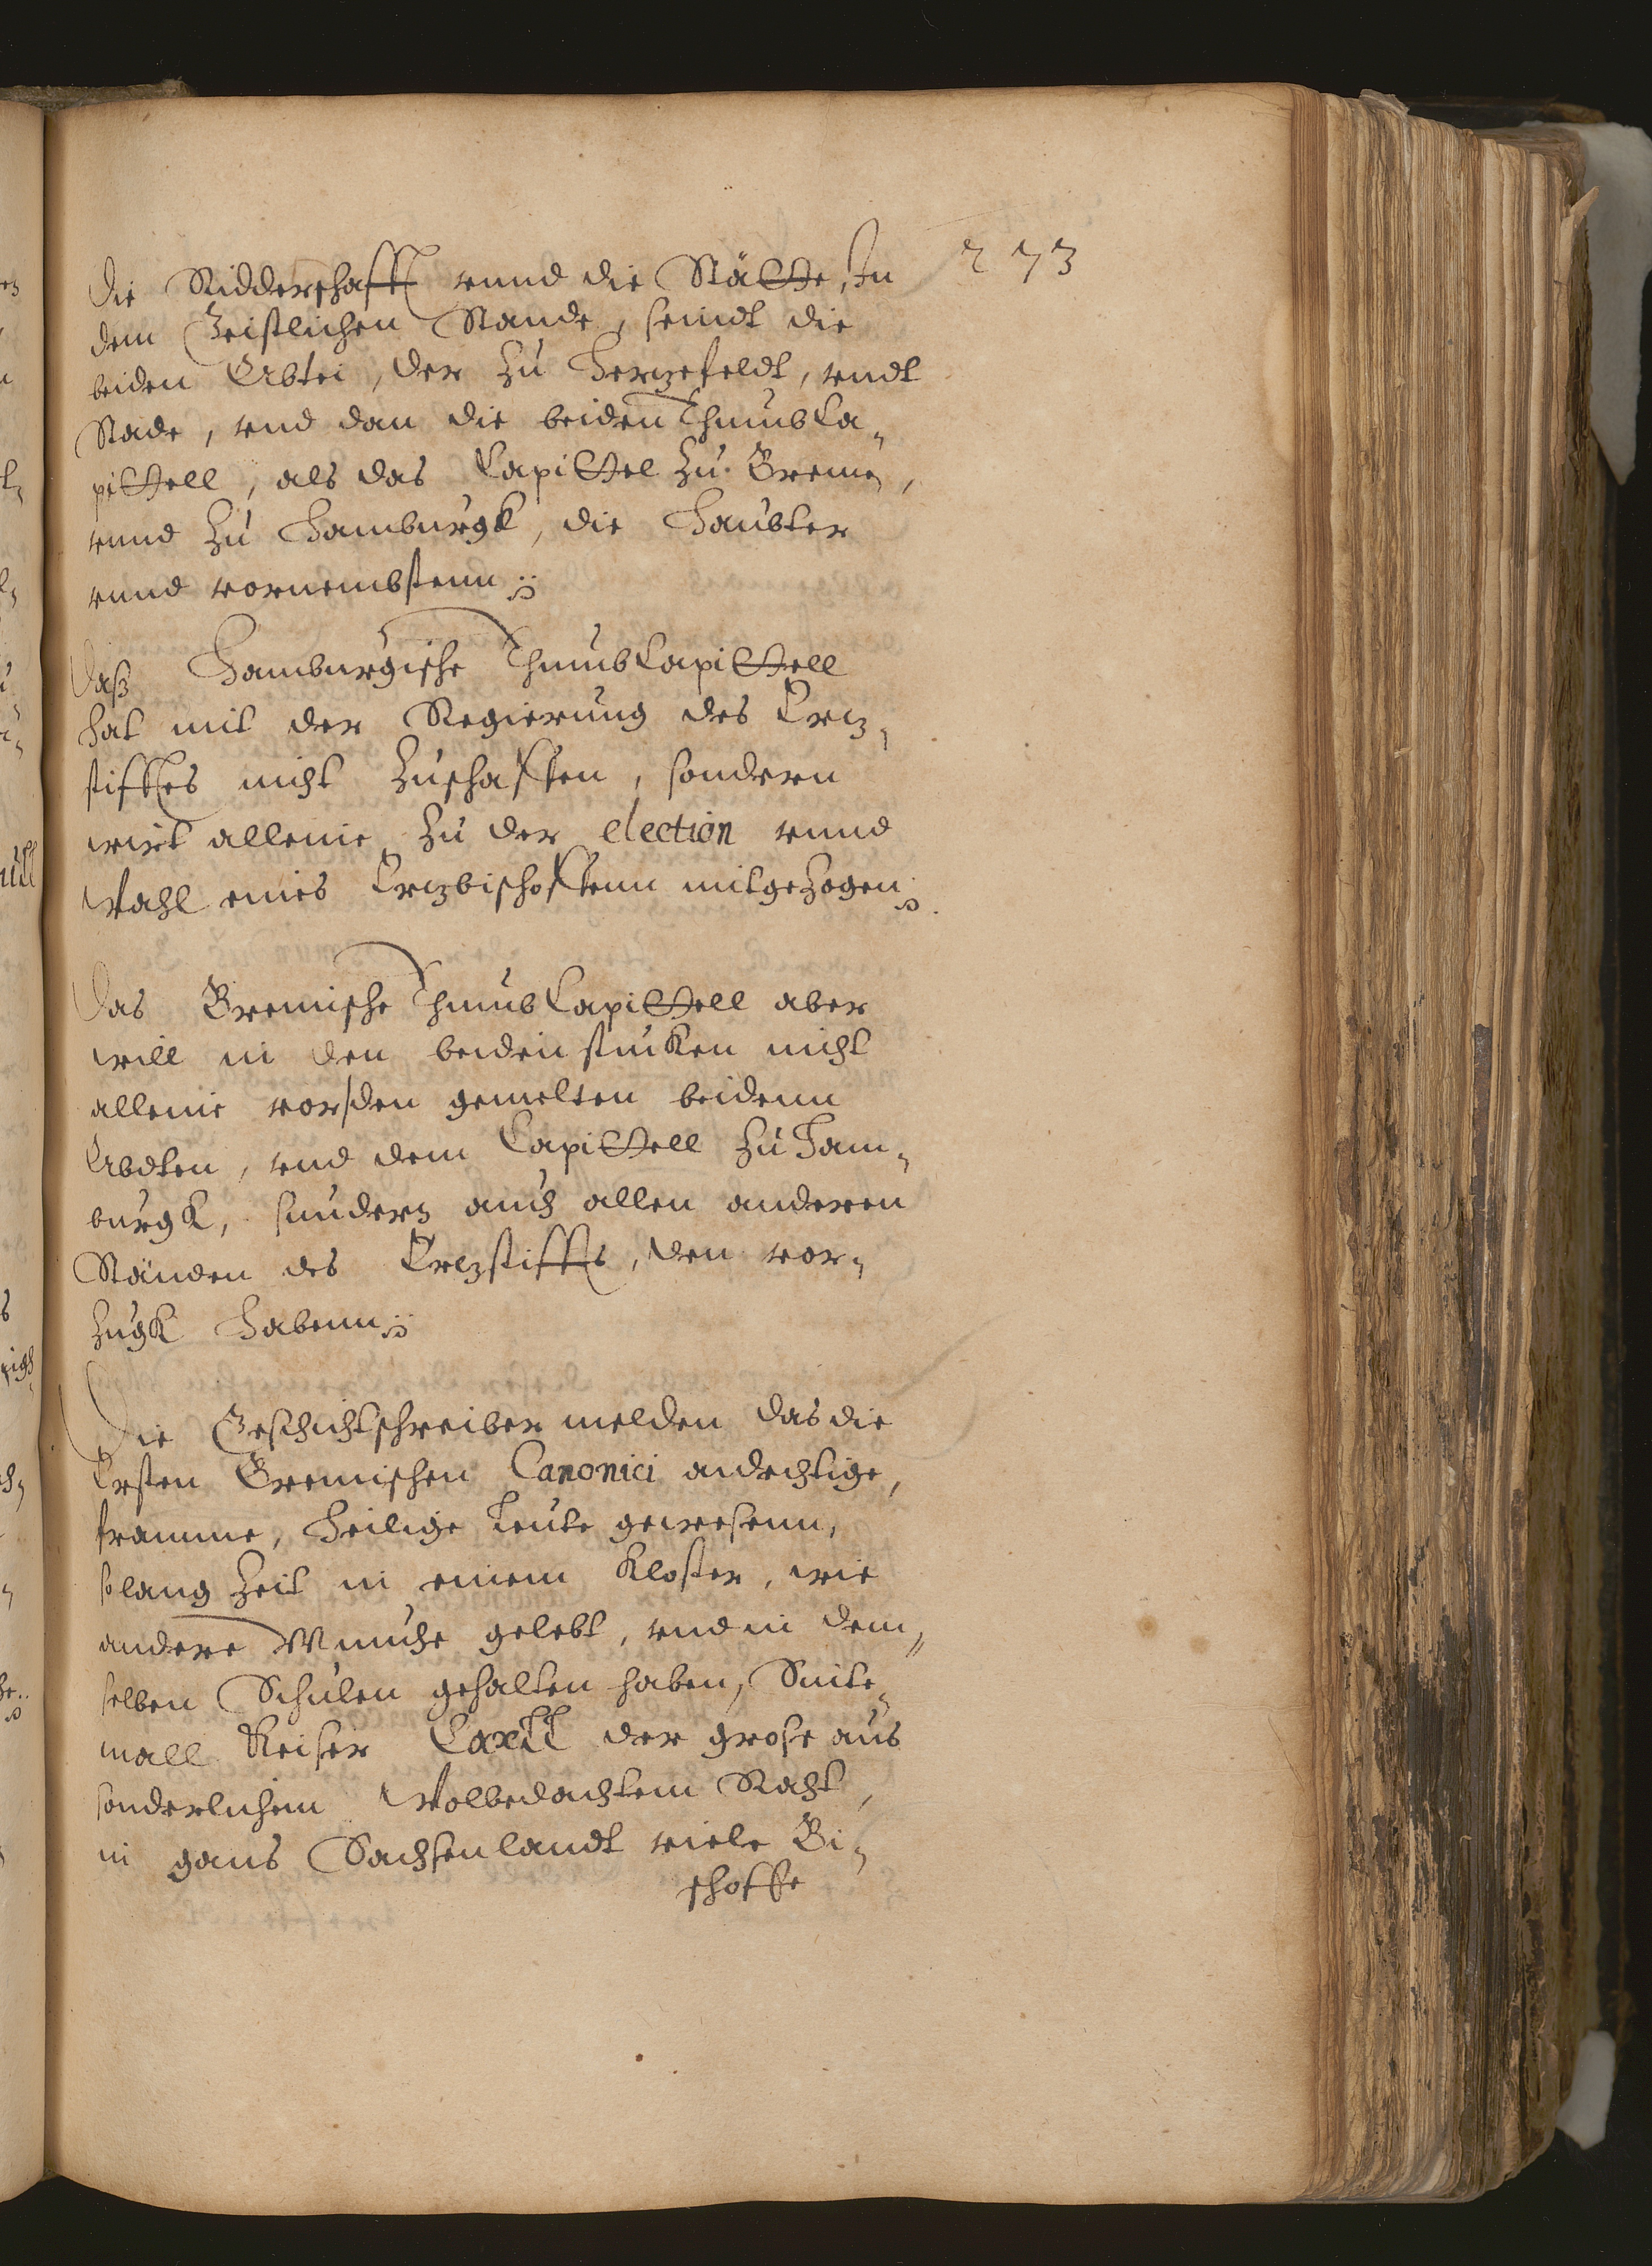 273
die Ridderschafft vnnd die Stätte, In
dem Geistlichen Stande, seindt die
beiden Abtei, der zu Herzefeldt, vndt
Stade, vnd dan die beiden Thumb Ca„
pittell, als das Capittel zu Bremen,
vnnd zu Hamburgk, die Haubter
vnnd vornembstenn
Daß Hamburgische Thumb Capittell
hat mit der Regierung des Ertz„
stifftes nicht zuschaffen, sondern
wirt alleine zu der election vnnd
Wahl eines Ertzbischoffenn mitgezogen
Das Bremische Thumb Capittell aber
will in den beiden stucken nicht
alleine vor den gemelten beidenn
Abdten, vnd dem Capittell zu Ham„
burgk, sundern auch allen anderen
Ständen des Ertzstiffts, den vor„
zugk habenn
Die Geschichtschreiber melden das die
Ersten Bremischen Canonici andechtige,
framme, heilige Leute gewesenn,
so lang Zeit in einem Kloster, wie
andere Munche gelebt, vnd in dem„
selben Schulen gehalten haben, Sinte„
mall Keiser Carll der grose aus
sonderlichem Wolbedachtem Raht,
in gans Sachsenlandt viele Bi„
schoffe